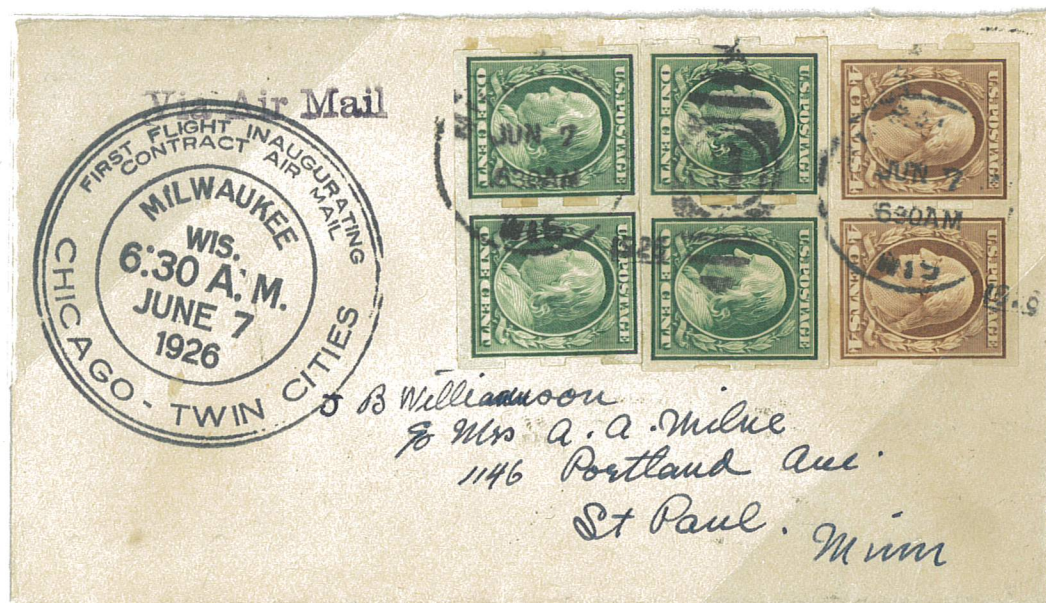 Via Air Mail
FIRST FLIGHT INAUGURATING
CONTRACT AIR MAIL
MILWAUKEE
WIS.
6:30 A.M.
JUNE 7
1926
CHICAGO - TWIN CITIES
U.S. POSTAGE
ONE CENT
U.S. POSTAGE
ONE CENT
U.S. POSTAGE
4 CENTS 4
U.S. POSTAGE
ONE CENT
U.S. POSTAGE
ONE CENT
U.S. POSTAGE
4 CENTS 4
JUN 7
630AM
WIS
1926
JUN 7
630AM
WIS
1926
J B Williamson
% Mrs A. A. Milne
1146 Portland Ave.
St Paul.
Minn